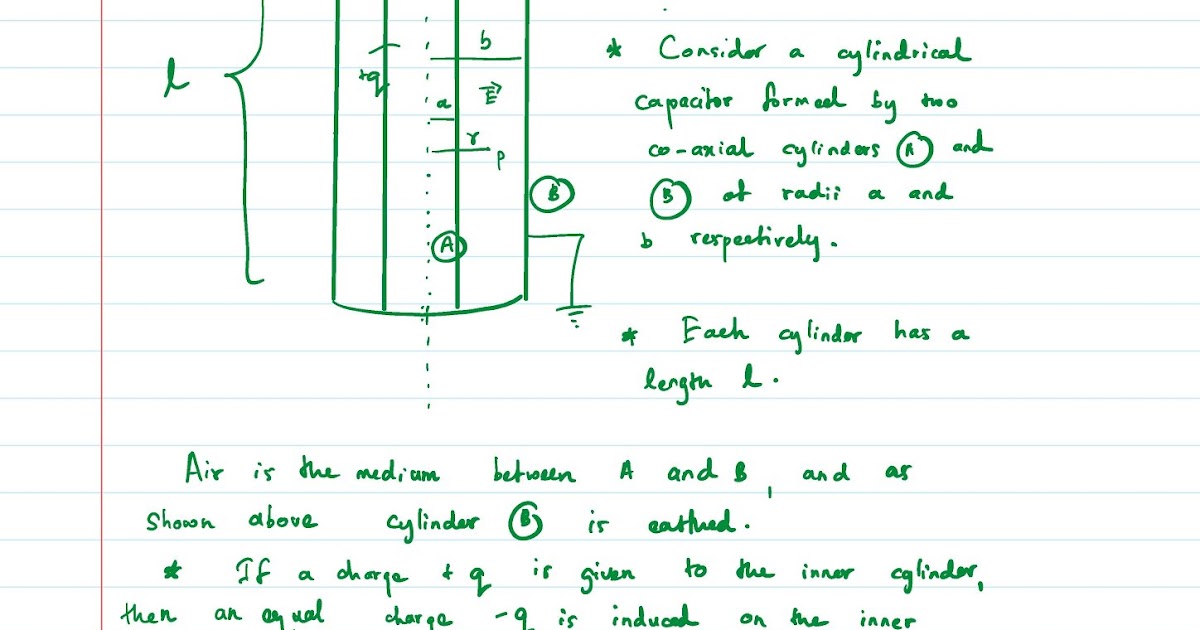 b
l
+q
a
E
r
p
B
A
* Consider a cylindrical
capacitor formed by two
co-axial cylinders A and
B of radii a and
b respectively.
* Each cylinder has a
length l.
Air is the medium between A and B, and as
shown above cylinder B is earthed.
* If a charge + q is given to the inner cylinder,
then an equal charge -q is induced on the inner